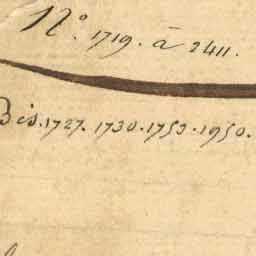 N.° 1719. à 2411.
Bis. 1727. 1730. 1753. 1950.